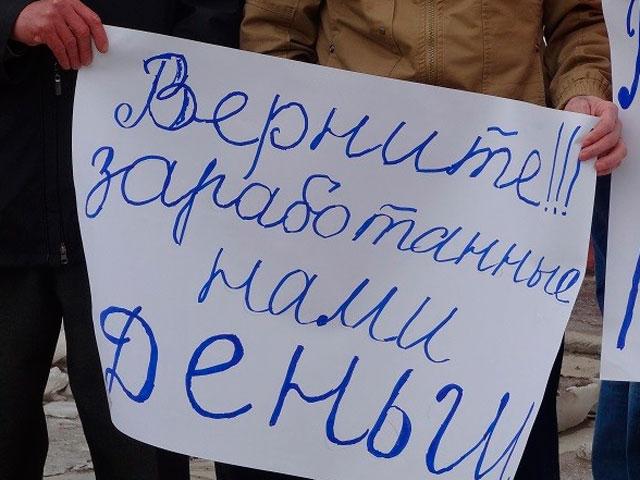 Верните!!!
заработанные
нами
Деньги